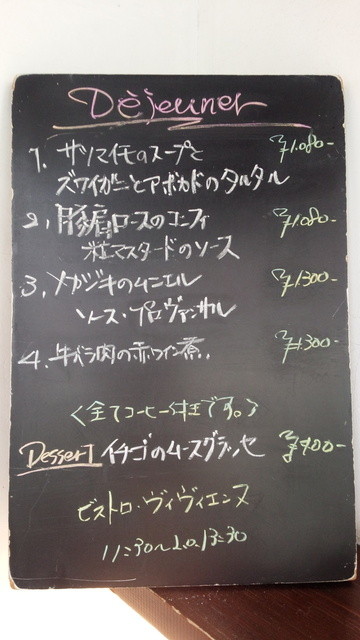 Déjeuner
1. サツマイモのスープと ¥1.080-
ズワイガニとアボカドのタルタル
2. 豚肩ロースのコンフィ ¥1.080-
粒マスタードのソース
3. メカジキのムニエル ¥1300-
ソース・プロヴァンサル
4. 牛バラ肉の赤ワイン煮. ¥1300-
<全てコーヒー付です。>
Dessert イチゴのムースグラッセ ¥400-
ビストロ・ヴィヴィエンヌ
11:30〜L.o.13:30